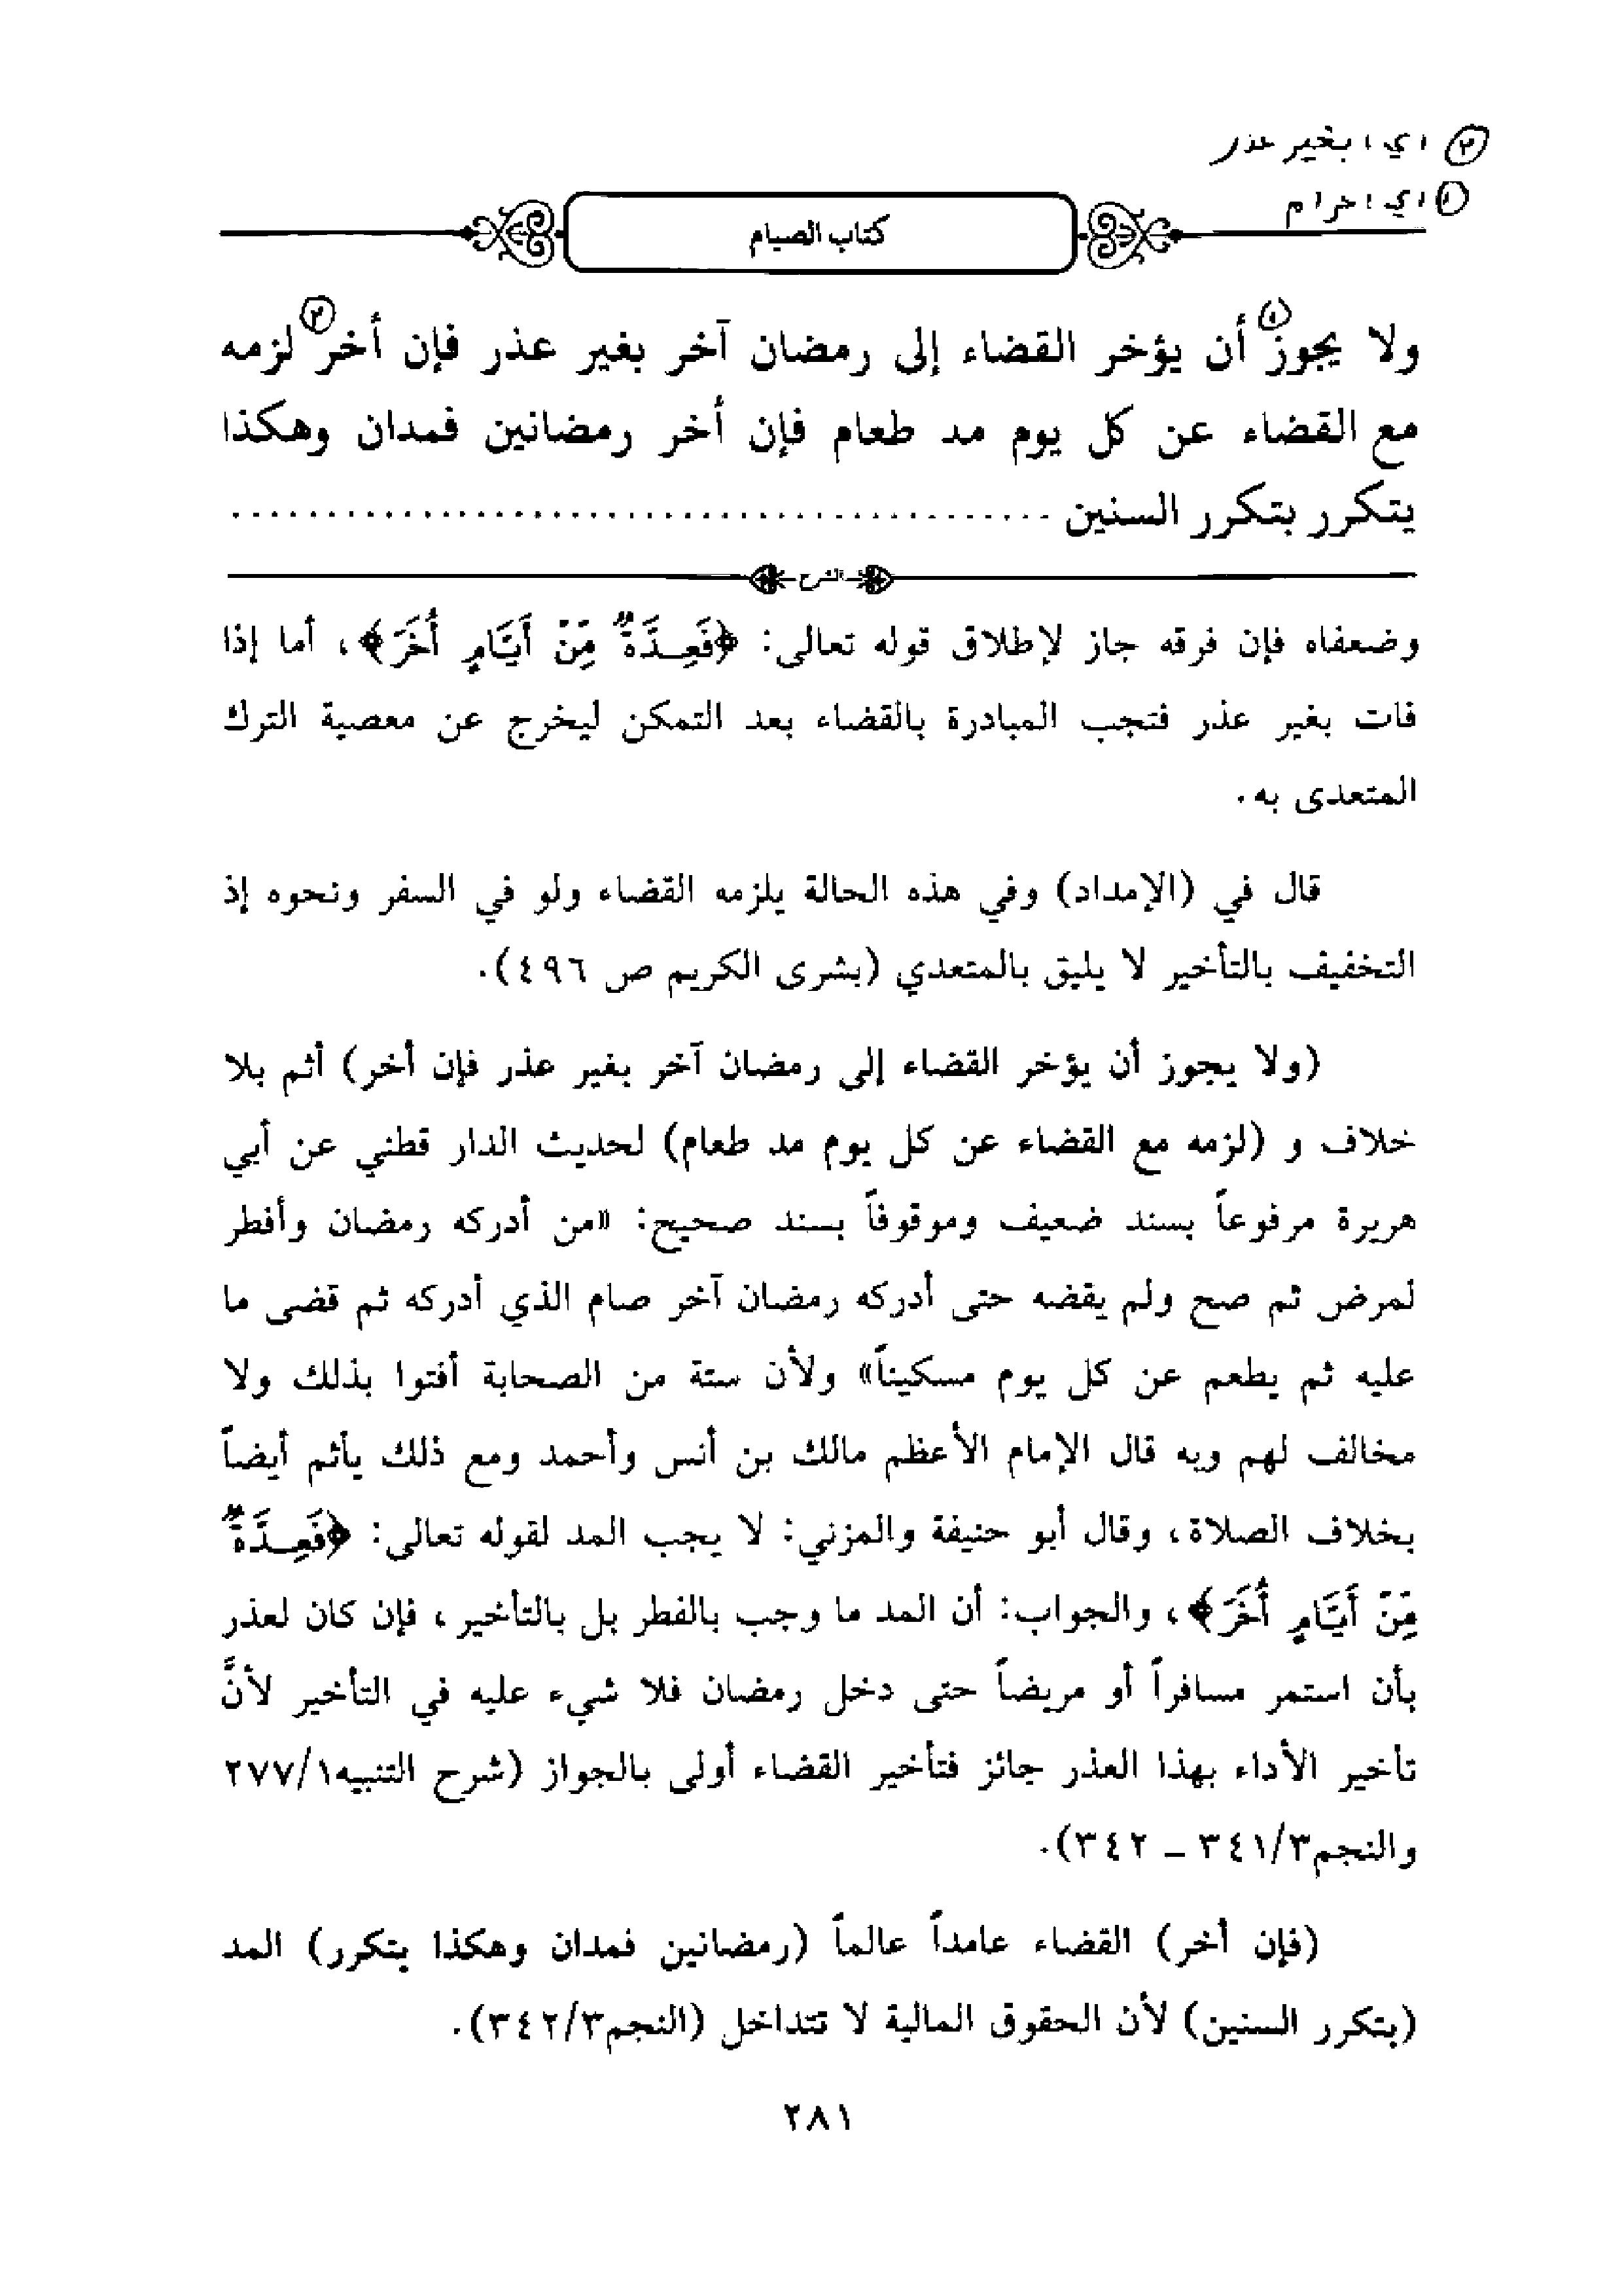 ٢ اي، بغير عذر
١ اي، حرام
كتاب الصيام
ولا يجوز١ أن يؤخر القضاء إلى رمضان آخر بغير عذر فإن أخر٢ لزمه
مع القضاء عن كل يوم مد طعام فإن أخر رمضانين فمدان وهكذا
يتكرر بتكرر السنين ............................................
الشرح
وضعفاه فإن فرقه جاز لإطلاق قوله تعالى: ﴿فَعِدَّةٌ مِّنْ أَيَّامٍ أُخَرَ﴾، أما إذا
فات بغير عذر فتجب المبادرة بالقضاء بعد التمكن ليخرج عن معصية الترك
المتعدى به.
قال في (الإمداد) وفي هذه الحالة يلزمه القضاء ولو في السفر ونحوه إذ
التخفيف بالتأخير لا يليق بالمتعدي (بشرى الكريم ص ٤٩٦).
(ولا يجوز أن يؤخر القضاء إلى رمضان آخر بغير عذر فإن أخر) أثم بلا
خلاف و (لزمه مع القضاء عن كل يوم مد طعام) لحديث الدار قطني عن أبي
هريرة مرفوعاً بسند ضعيف وموقوفاً بسند صحيح: «من أدركه رمضان وأفطر
لمرض ثم صح ولم يقضه حتى أدركه رمضان آخر صام الذي أدركه ثم قضى ما
عليه ثم يطعم عن كل يوم مسكيناً» ولأن ستة من الصحابة أفتوا بذلك ولا
مخالف لهم وبه قال الإمام الأعظم مالك بن أنس وأحمد ومع ذلك يأثم أيضاً
بخلاف الصلاة، وقال أبو حنيفة والمزني: لا يجب المد لقوله تعالى: ﴿فَعِدَّةٌ
مِّنْ أَيَّامٍ أُخَرَ﴾، والجواب: أن المد ما وجب بالفطر بل بالتأخير، فإن كان لعذر
بأن استمر مسافراً أو مريضاً حتى دخل رمضان فلا شيء عليه في التأخير لأنَّ
تأخير الأداء بهذا العذر جائز فتأخير القضاء أولى بالجواز (شرح التنبيه٢٧٧/١
والنجم٣٤١/٣ - ٣٤٢).
(فإن أخر) القضاء عامداً عالماً (رمضانين فمدان وهكذا يتكرر) المد
(بتكرر السنين) لأن الحقوق المالية لا تتداخل (النجم٣٤٢/٣).
٢٨١